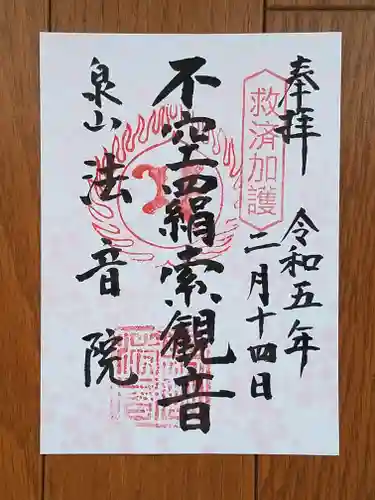 奉拝
令和五年
二月十四日
救済加護
不空羂索観音
泉山
法音院